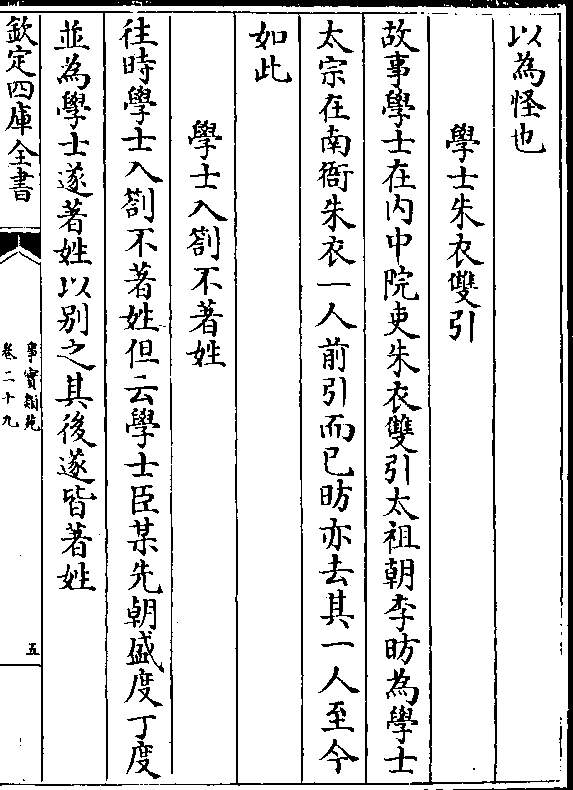 以為怪也
學士朱衣雙引
故事學士在内中院吏朱衣雙引太祖朝李昉為學士
太宗在南衙朱衣一人前引而已昉亦去其一人至今
如此
學士入劄不著姓
往時學士入劄不著姓但云學士臣某先朝盛度丁度
並為學士遂著姓以别之其後遂皆著姓
欽定四庫全書
事實類苑
卷二十九
五